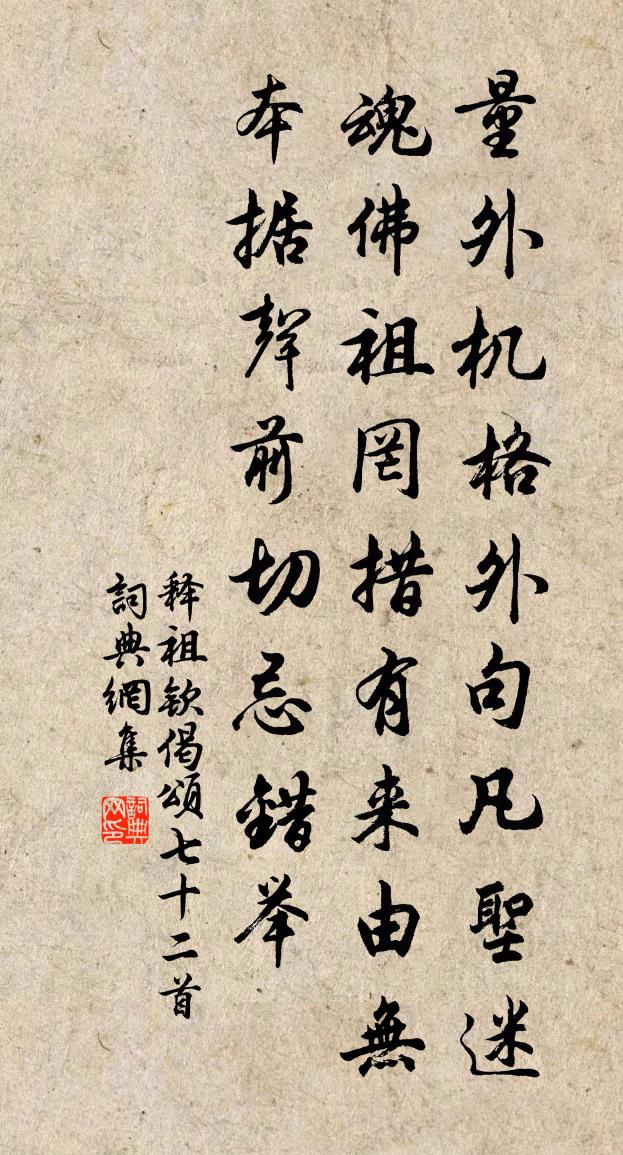 量外机格外句凡聖迷
魂佛祖罔措有来由無
本据聲前切忌錯举
释祖钦偈頌七十二首
詞典網集
詞典网印